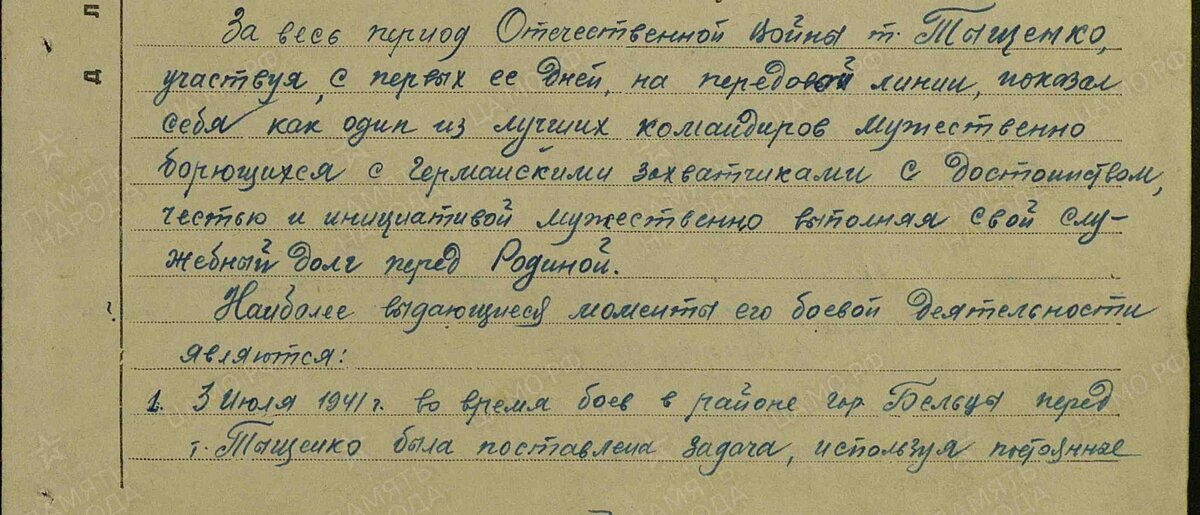 За весь период Отечественной войны т. Тыщенко,
участвуя, с первых ее дней, на передовой линии, показал
себя как один из лучших командиров мужественно
борющихся с германскими захватчиками с достоинством,
честью и инициативой мужественно выполняя свой слу-
жебный долг перед Родиной.
Наиболее выдающиеся моменты его боевой деятельности
являются:
1. 3 Июля 1941 г. во время боев в районе гор. Бельцы перед
т. Тыщенко была поставлена задача, используя постоянные